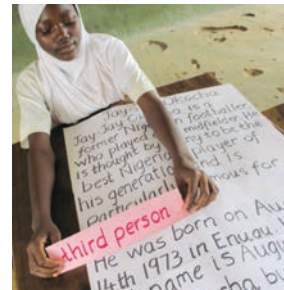 Jay Okocha
Jay Jay O is a
former Nig n footballer
who played midfielder. He
is thought by ny to be the
best Nigeria player of
his generation and is
particularly mous for
third person
He was born on Au
14th 1973 in
name is Augu
cha bu